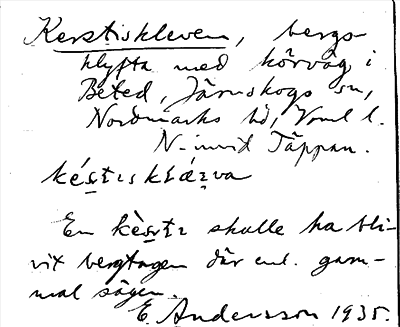 Kerstiskleven, bergs-
klyfta med körväg i
Beted, Järnskogs sn,
Nordmarks hd, Vrml l.
N. invid Täppan.
En kèstɩ skulle ha bli-
vit bergtagen där enl. gam-
mal sägen.
E. Andersson 1935.